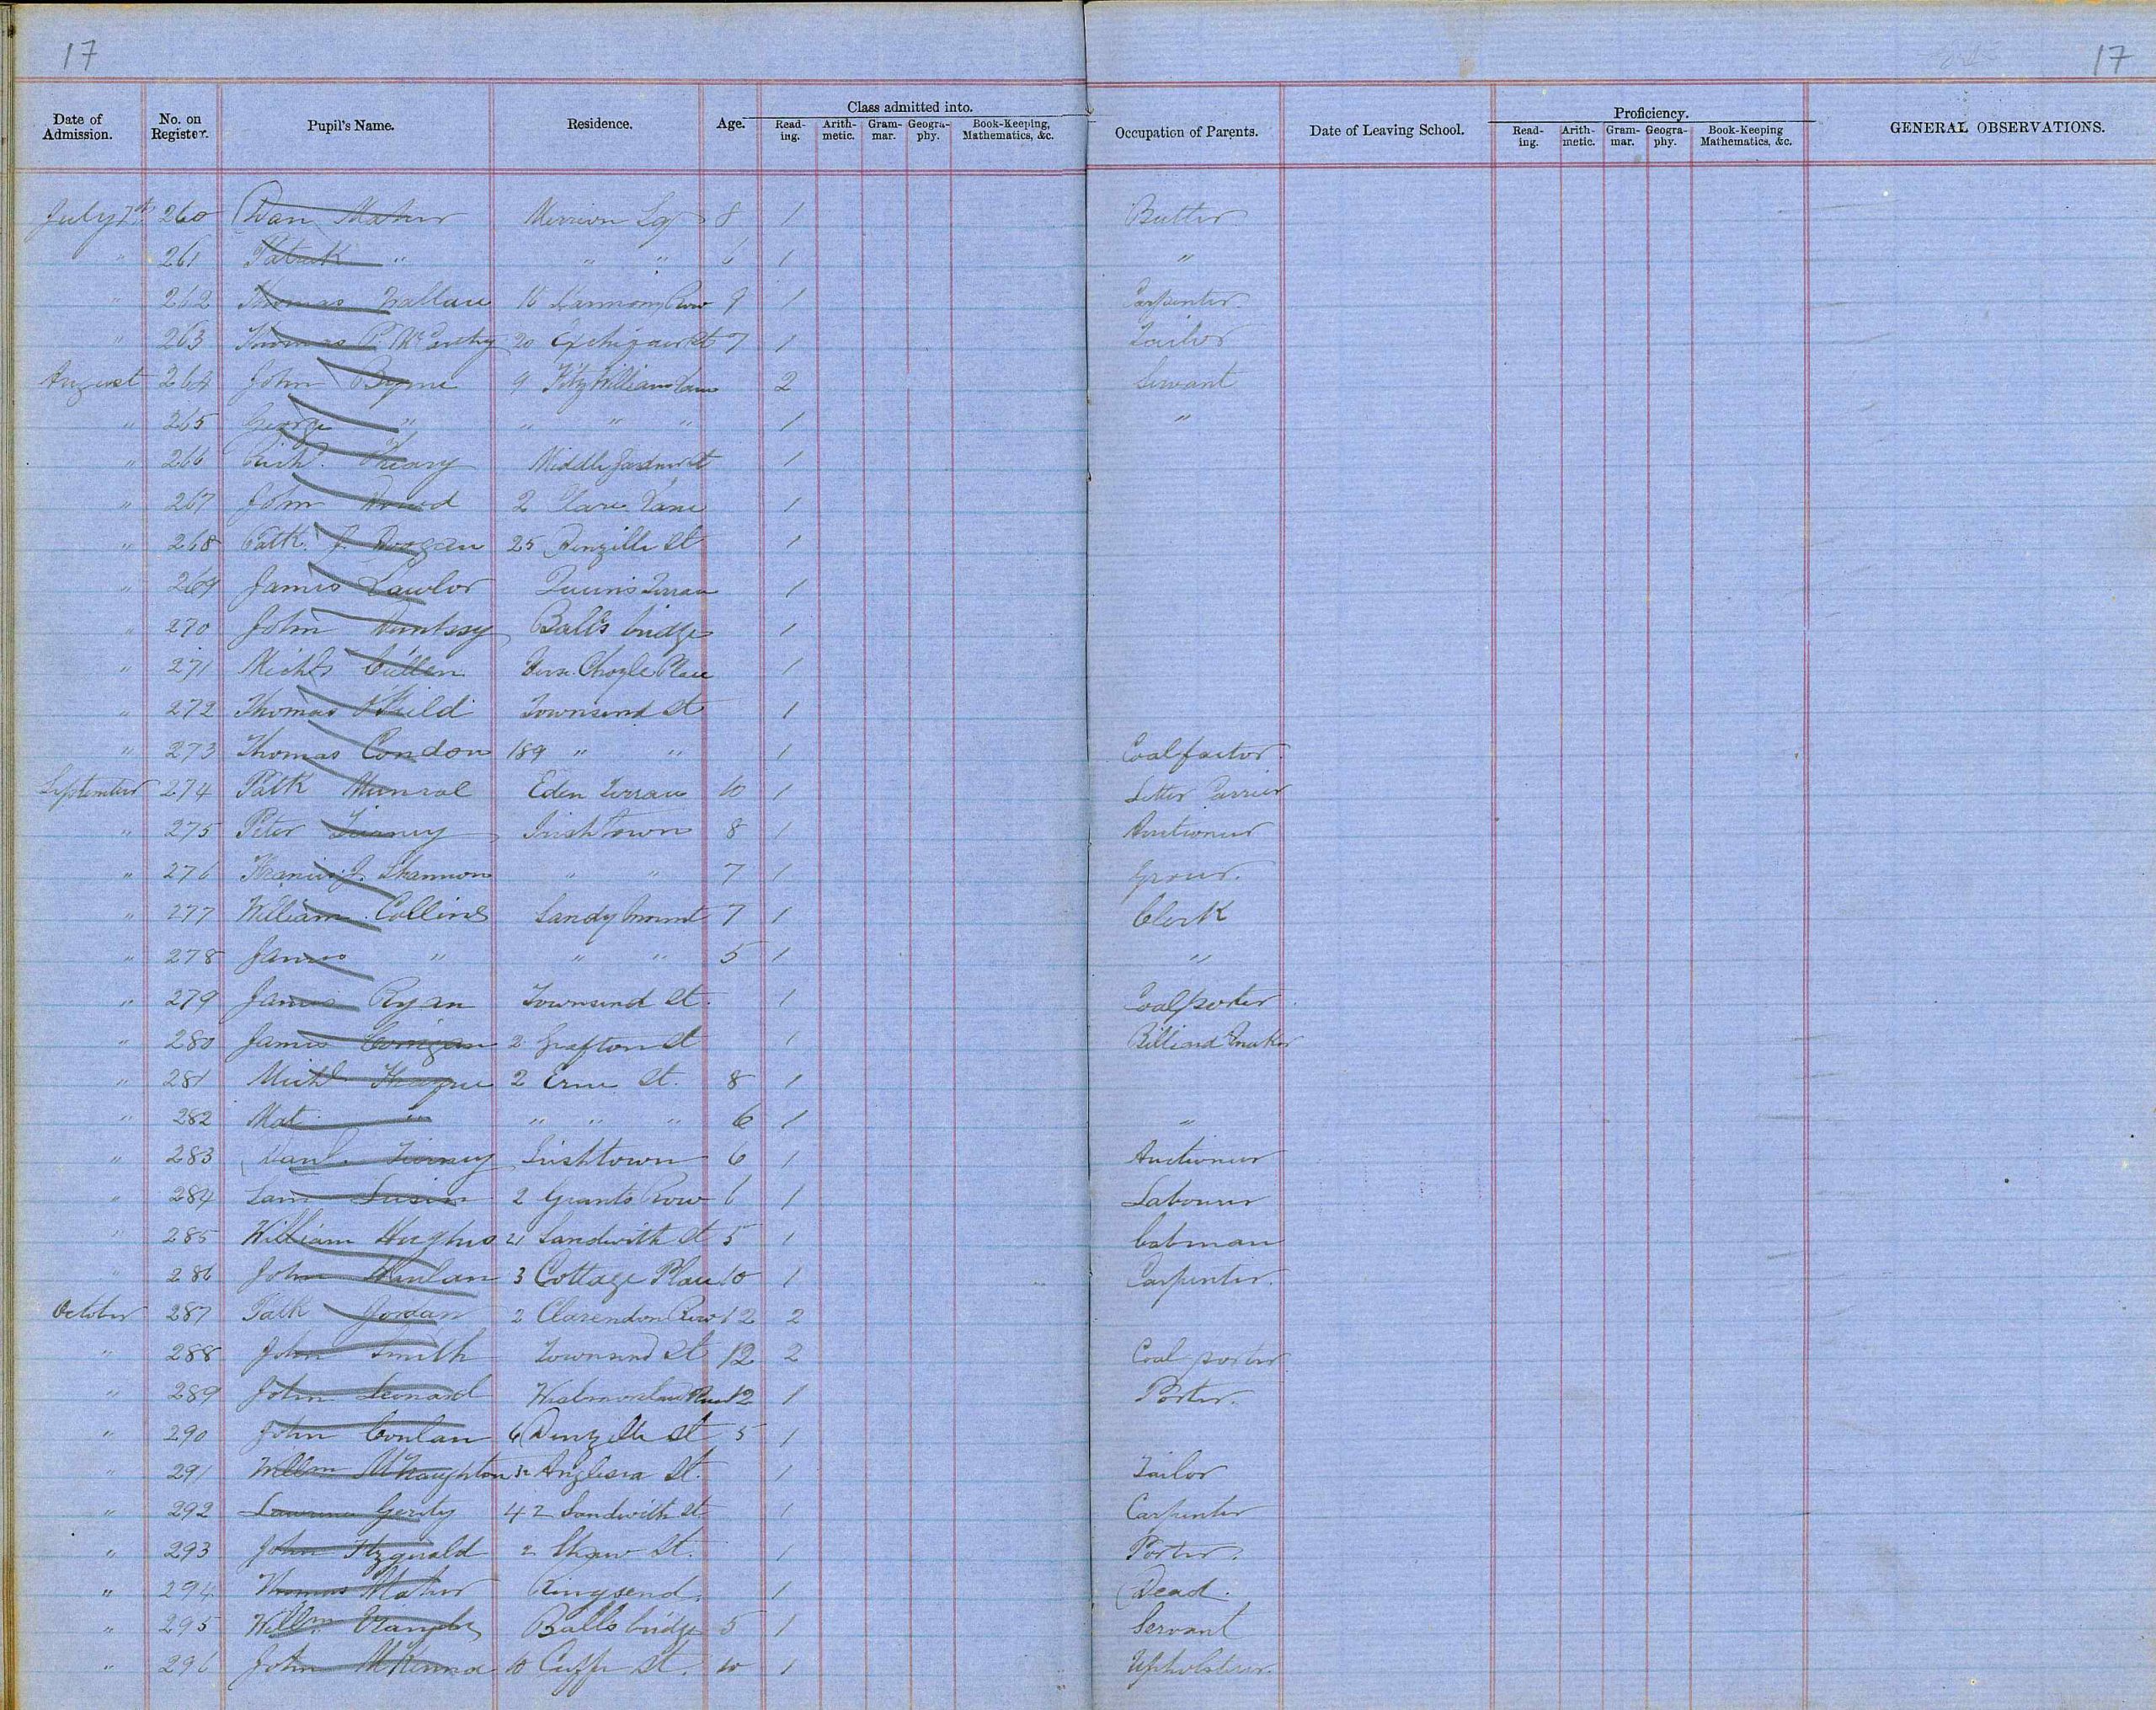 17 17
Date of Admission. No. on Register. Pupil's Name. Residence. Age. Class admitted into. Reading. Arithmetic. Grammar. Geography. Book-Keeping, Mathematics, &c. Occupation of Parents. Date of Leaving School. Proficiency. Reading. Arithmetic. Grammar. Geography. Book-Keeping Mathematics, &c. GENERAL OBSERVATIONS.
July 260 Dan Maher Merrion Sq 8 1 Butler
" 261 Patrick " " " 6 1 "
" 262 Thomas Wallace 16 Harmony Row 9 1 Carpenter
" 263 Thomas P. McCarthy 20 St 7 1 Tailor
August 264 John Byrne 9 Fitzwilliam Lane 2 Servant
" 265 George " " " " 1 "
" 266 Richd. Middle Gardiner St 1
" 267 John 2 Clare Lane 1
" 268 Patk. J. Dorgan 25 Denzille St 1
" 269 James Lawlor Queen's Terrace 1
" 270 John Ball's bridge 1
" 271 Michl Cullen Place 1
" 272 Thomas Townsend St 1
" 273 Thomas Condon 189 " " 1 Coalfactor
September 274 Patk Eden Terrace 10 1 Letter Carrier
" 275 Peter Tierney Irishtown 8 1 Auctioneer
" 276 Francis J. Shannon " " 7 1 Grocer.
" 277 William Collins Sandymount 7 1 Clerk
" 278 James " " " 5 1 "
" 279 James Ryan Townsend St. 1 Coalporter
" 280 James Corrigan 2 Grafton St 1 Billiard maker
" 281 Michl 2 Erne St. 8 1
" 282 Mat " " " " 6 1 "
" 283 Danl. Tierney Irishtown 6 1 Auctioneer
" 284 2 Grants Row 6 1 Labourer
" 285 William Hughes 21 Sandwith St 5 1 Cabman
286 John 3 Cottage Place 10 1 Carpenter.
October 287 Patk Jordan 2 Clarendon Row 12 2
" 288 John Smith Townsend St 12 2 Coal porter
" 289 John Leonard Westmoreland 12 1 Porter.
" 290 John Conlan 6 Denzille St 5 1
" 291 Willm McNaughton 32 Anglesea St. 1 Tailor
" 292 Laurence Gerity 42 Sandwith St 1 Carpenter
" 293 John Fitzgerald 2 Shaw St. 1 Porter.
" 294 Thomas Maher Ringsend. 1 Dead.
" 295 Willm. Balls bridge 5 1 Servant
" 296 John McKenna 10 Cuffe St. 10 1 Upholsterer.